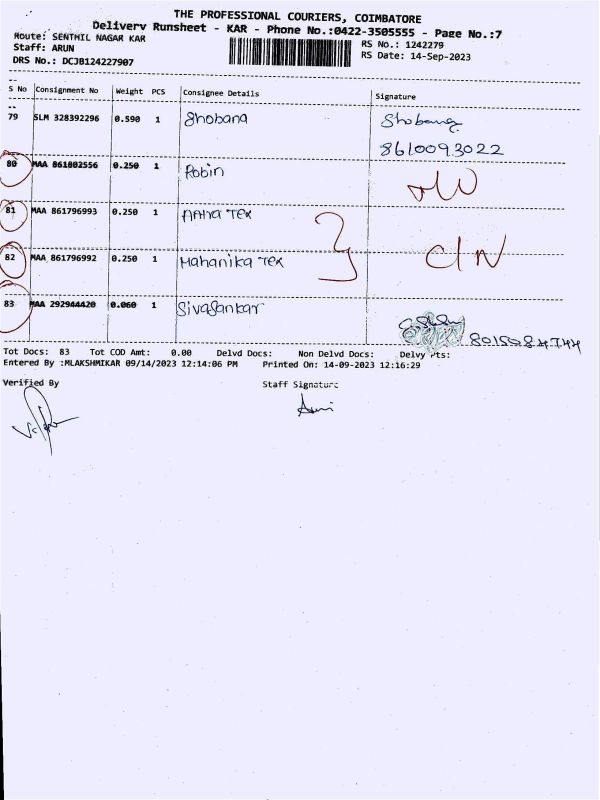 THE PROFESSIONAL COURIERS, COIMBATORE
Delivery Runsheet - KAR - Phone No.:0422-3505555 - Page No.:7
Route: SENTHIL NAGAR KAR RS No.: 1242279
Staff: ARUN RS Date: 14-Sep-2023
DRS No.: DCJB124227907
S No Consignment No Weight PCS Consignee Details Signature
79 SLM 328392296 0.590 1 Shobana Shobana
8610093022
80 MAA 861802556 0.250 1 Robin
81 MAA 861796993 0.250 1 Tex
82 MAA 861796992 0.250 1 Mahanika Tex C/N
83 MAA 292944420 0.060 1 Sivasankar
Tot Docs: 83 Tot COD Amt: 0.00 Delvd Docs: Non Delvd Docs: Delvy Pts:
Entered By :MLAKSHMIKAR 09/14/2023 12:14:06 PM Printed On: 14-09-2023 12:16:29
Verified By Staff Signature